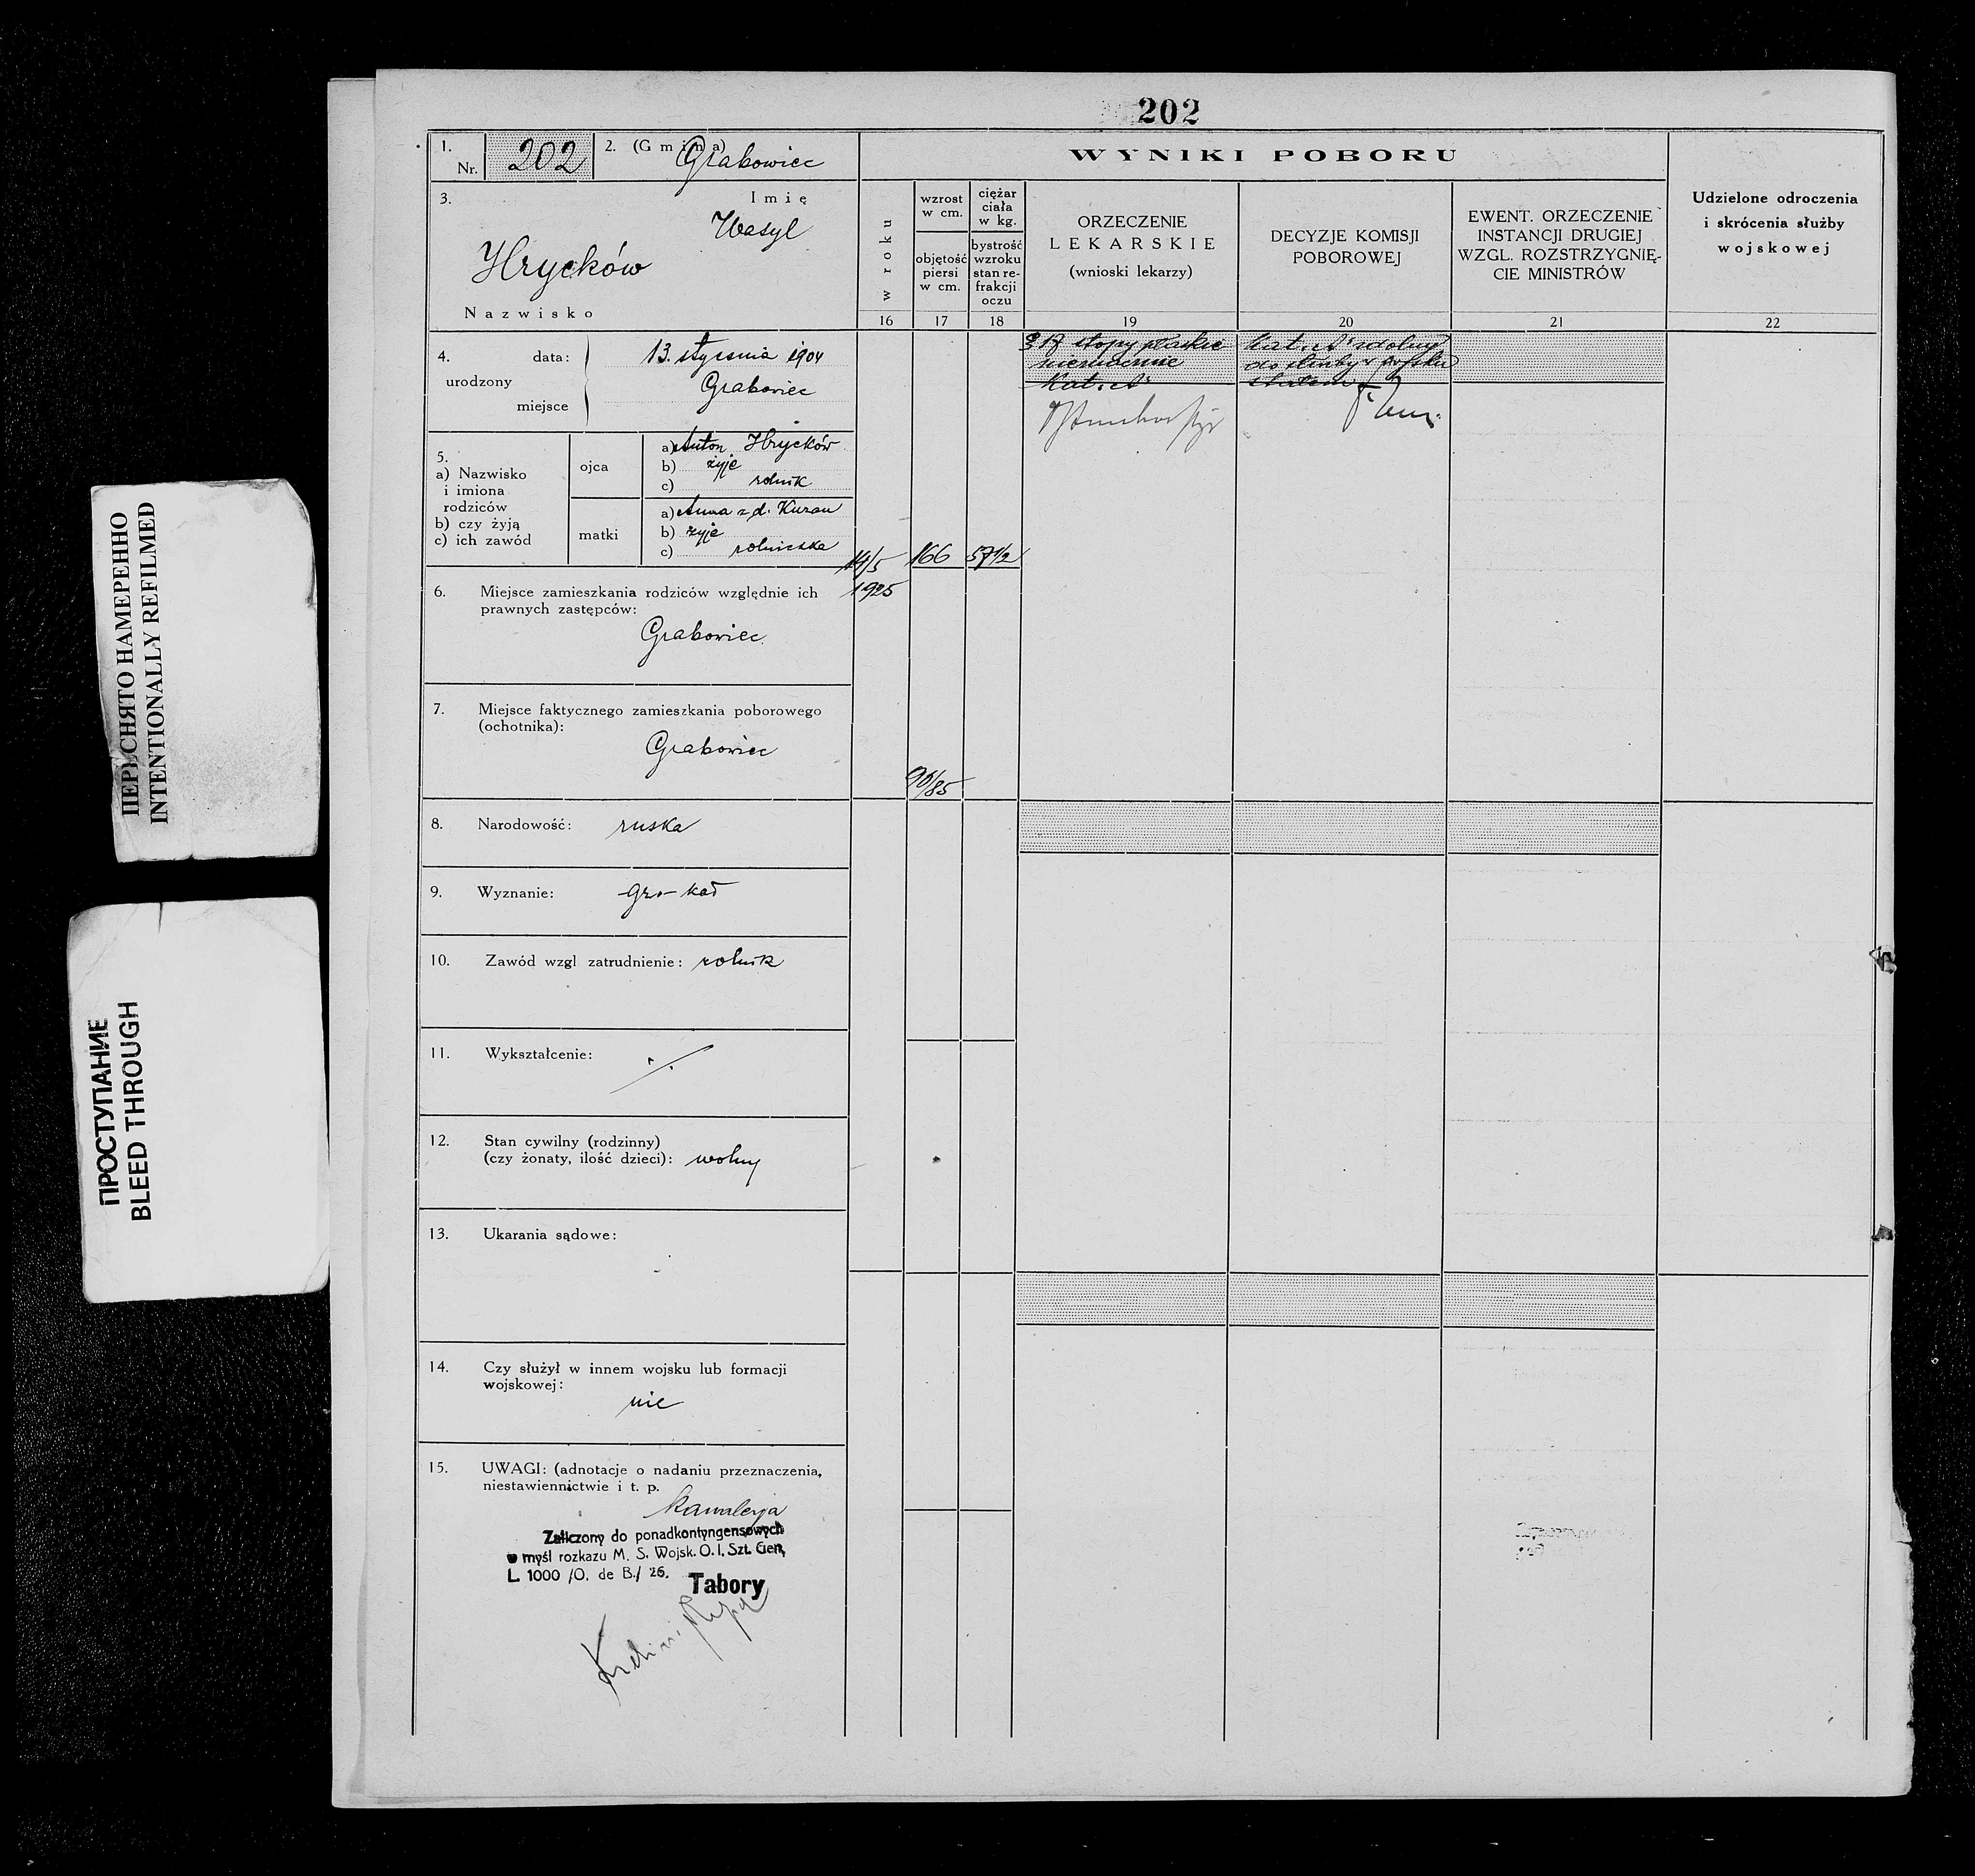 202
1.
Nr. 202
2. (Gmina) Grabowiec
3. Imię
Wasyl
Hryckow
Nazwisko
4. data: 13. stycznia 1904
urodzony
Grabowiec
miejsce
5.
a) Nazwisko
i imiona
rodziców
b) czy żyją
c) ich zawód
ojca
a) Anton Hrycków
b) żyje
c) rolnik
matki
a) Anna z d. Kuzan
b) żyje
c) rolniczka
6. Miejsce zamieszkania rodziców względnie ich
prawnych zastępców:
Grabowiec
7. Miejsce faktycznego zamieszkania poborowego
(ochotnika):
Grabowiec
8. Narodowość: ruska
9. Wyznanie: gr.-kat
10. Zawód wzgl zatrudnienie: rolnik
11. Wykształcenie: ·/.
12. Stan cywilny (rodzinny)
(czy żonaty, ilość dzieci): wolny
13. Ukarania sądowe:
14. Czy służył w innem wojsku lub formacji
wojskowej:
nie
15. UWAGI: (adnotacje o nadaniu przeznaczenia,
niestawiennictwie i t. p.
kawalerja
Zaliczony do ponadkontyngensowych
w myśl rozkazu M. S. Wojsk. O. I. Szt. Gen,
L. 1000 /O. de B./ 26.
Tabory
WYNIKI POBORU
w roku
16
wzrost
w cm.
objętość
piersi
w cm.
17
ciężar
ciała
w kg.
bystrość
wzroku
stan re-
frakcji
oczu
18
ORZECZENIE
LEKARSKIE
(wnioski lekarzy)
19
DECYZJE KOMISJI
POBOROWEJ
20
EWENT. ORZECZENIE
INSTANCJI DRUGIEJ
WZGL. ROZSTRZYGNIĘ-
CIE MINISTRÓW
21
Udzielone odroczenia
i skrócenia służby
wojskowej
22
14/5
1925
166
57 1/2
90/85
stopy płaskie
nieznacznie
Kat. A
Kat. A zdolny
do służby wojsku
ПЕРЕСНЯТО НАМЕРЕННО
INTENTIONALLY REFILMED
ПРОСТУПАНИЕ
BLEED THROUGH